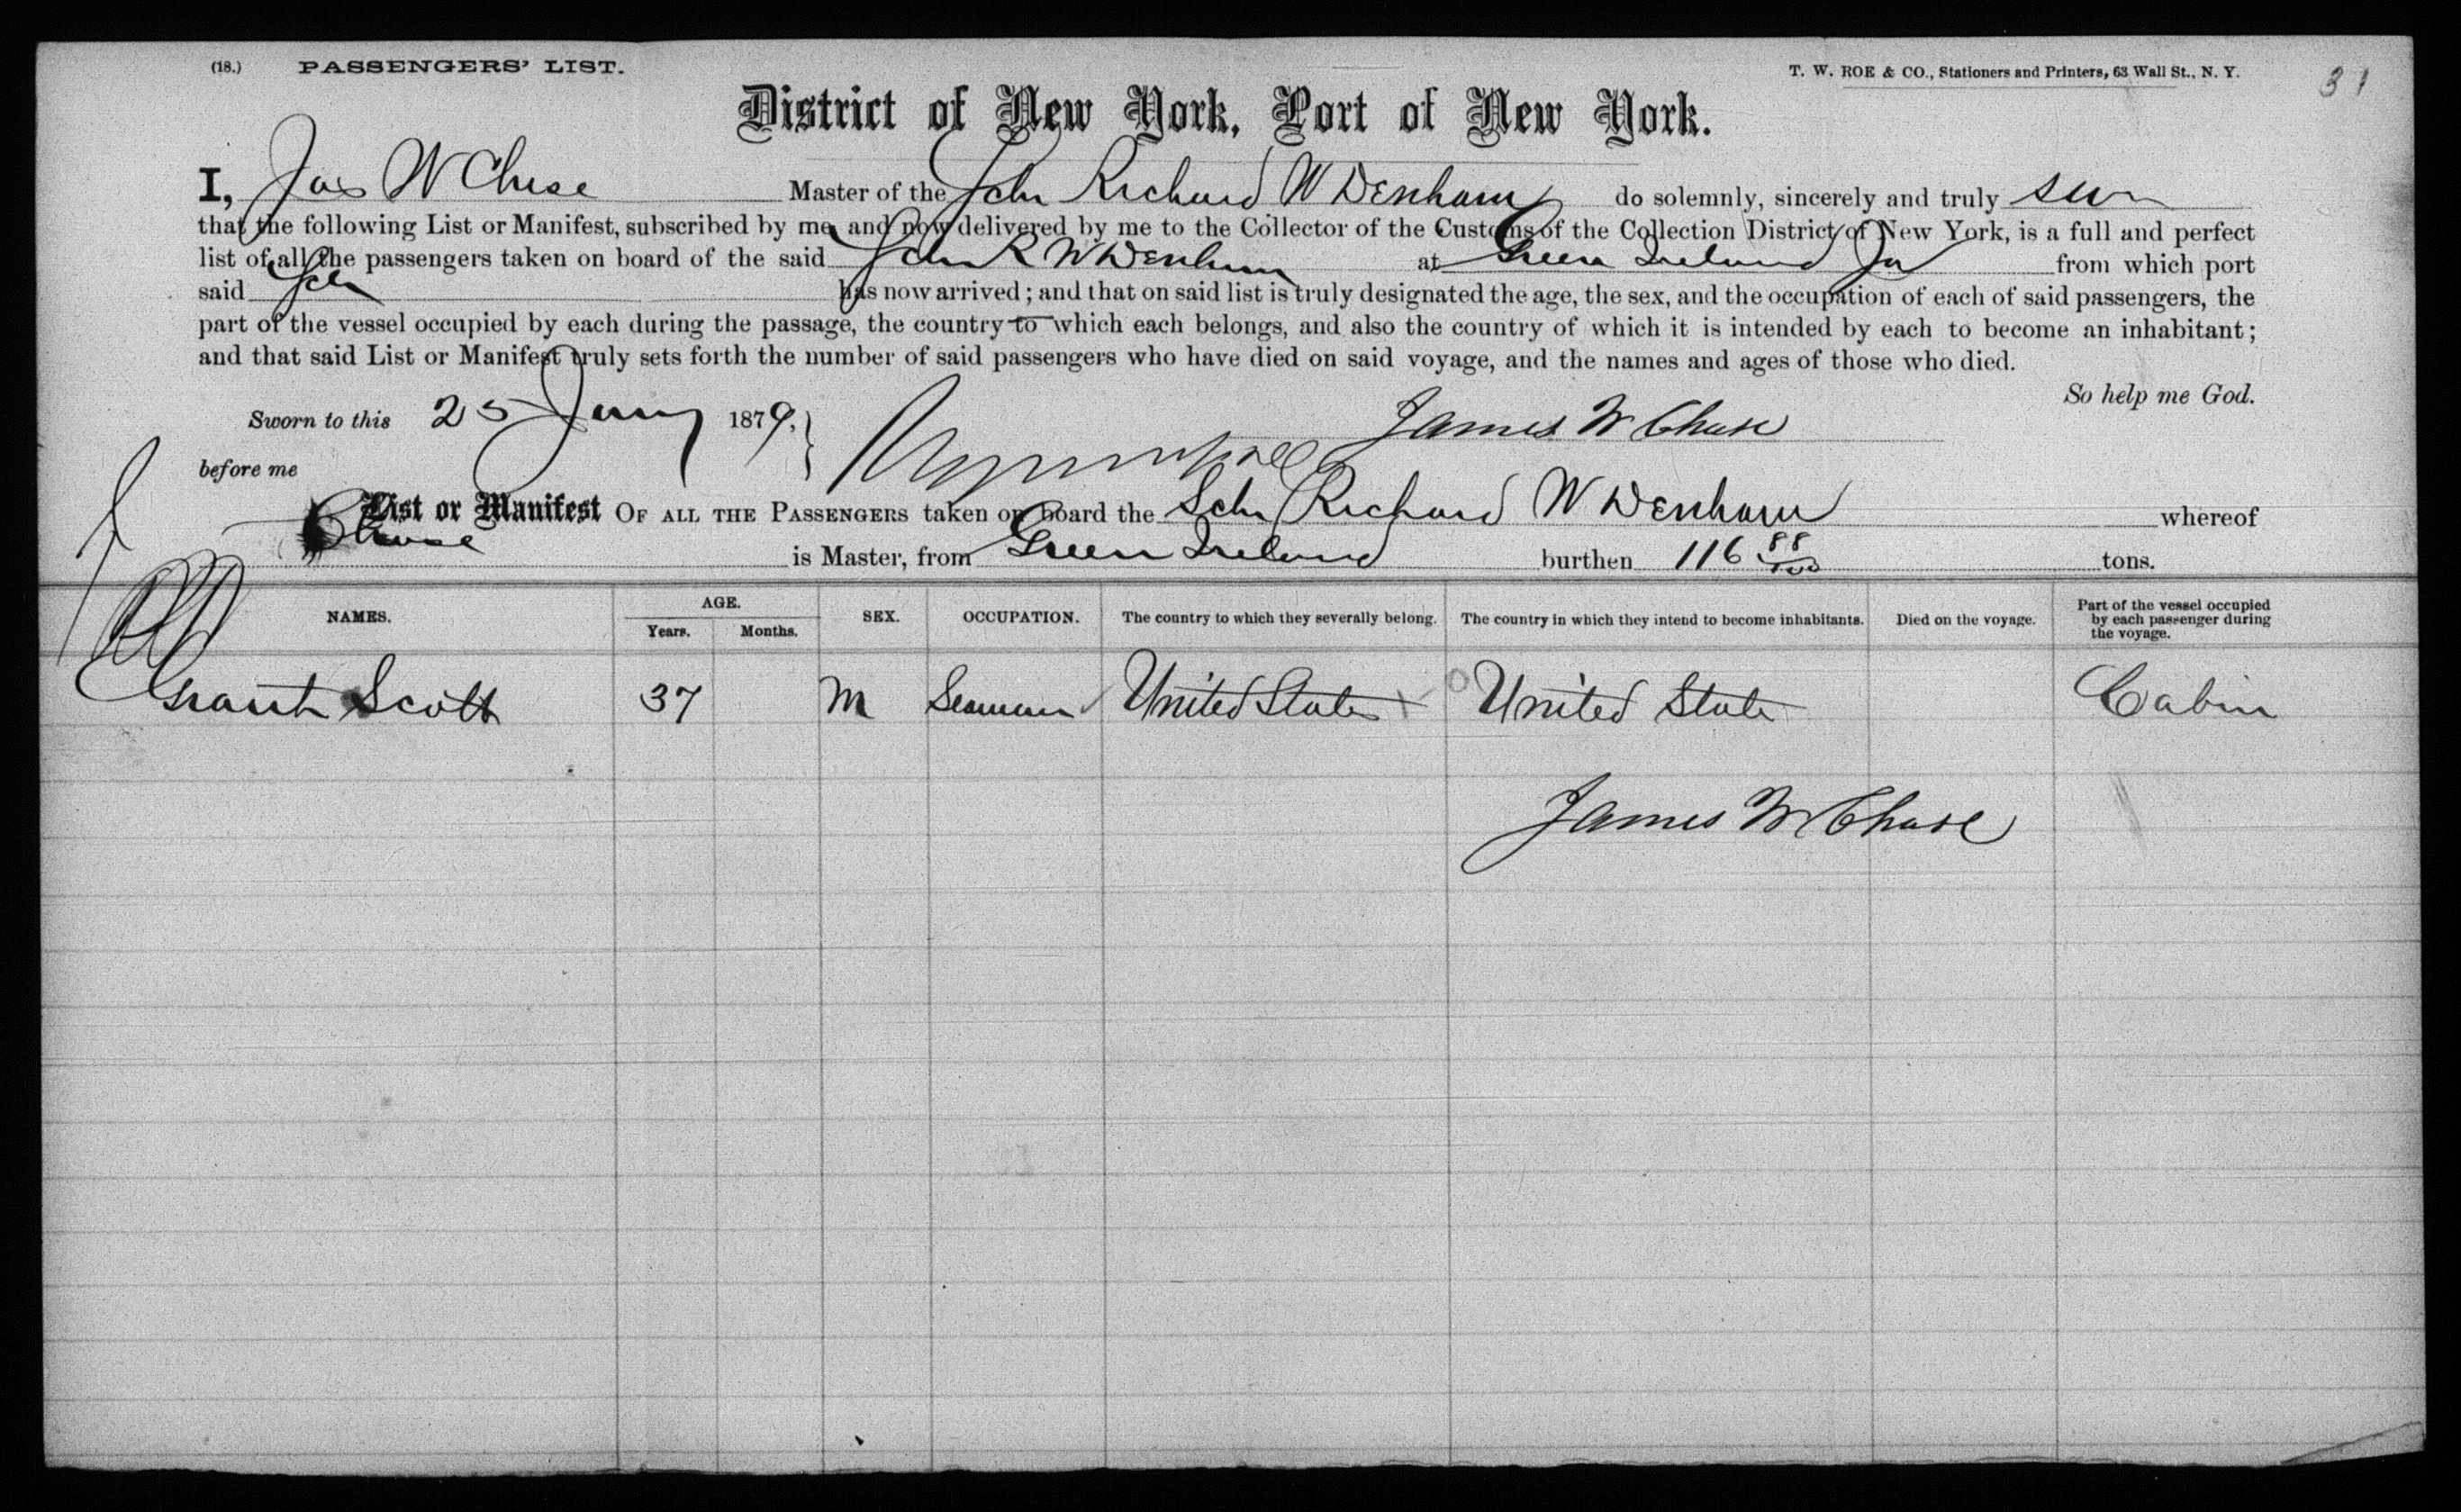 (18.) PASSENGERS' LIST. T. W. ROE & CO., Stationers and Printers, 63 Wall St., N. Y. 31
District of New York, Port of New York.
I, Jas W Chase Master of the Schr Richard W Denham do solemnly, sincerely and truly swear
that the following List or Manifest, subscribed by me and now delivered by me to the Collector of the Customs of the Collection District of New York, is a full and perfect
list of all the passengers taken on board of the said Schr R W Denham at Green Island Ja from which port
said Schr has now arrived; and that on said list is truly designated the age, the sex, and the occupation of each of said passengers, the
part of the vessel occupied by each during the passage, the country to which each belongs, and also the country of which it is intended by each to become an inhabitant;
and that said List or Manifest truly sets forth the number of said passengers who have died on said voyage, and the names and ages of those who died.
So help me God.
Sworn to this 25 Jany 1879, James W Chase
before me
List or Manifest OF ALL THE PASSENGERS taken on board the Schr Richard W Denham whereof
Chase is Master, from Green Island burthen 116 88/100 tons.
NAMES. AGE. Years. Months. SEX. OCCUPATION. The country to which they severally belong. The country in which they intend to become inhabitants. Died on the voyage. Part of the vessel occupied by each passenger during the voyage.
Grant Scott 37 M Seaman United States United State Cabin
James W Chase